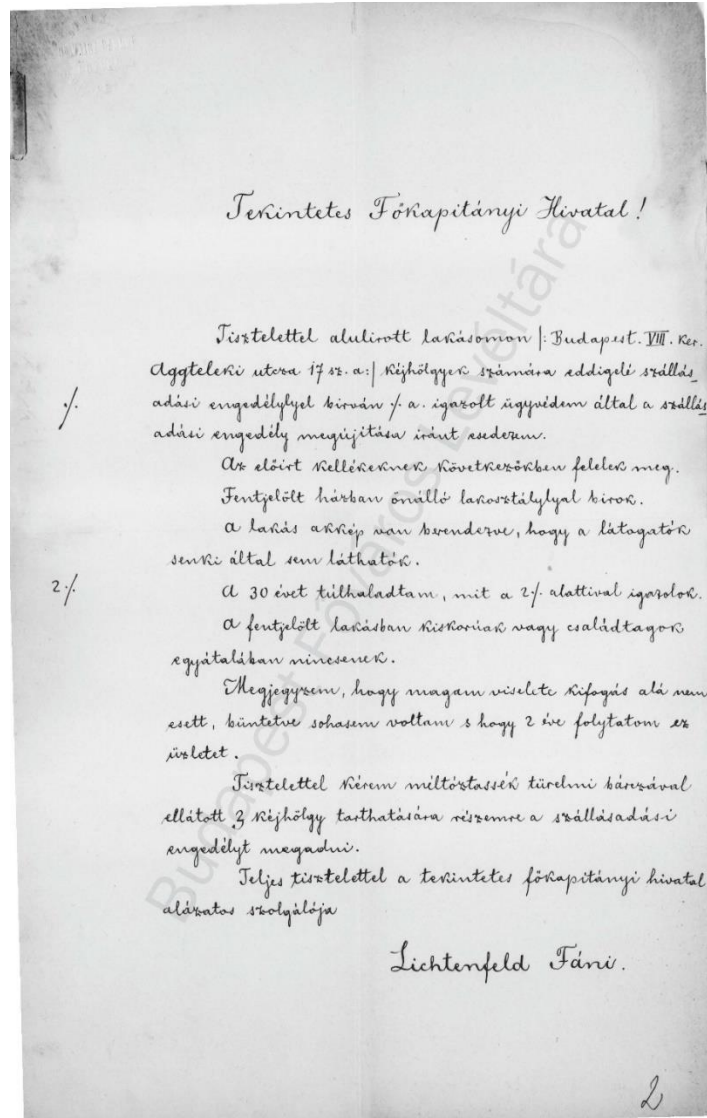 Tekintetes Főkapitányi Hivatal!
Tisztelettel alulirott lakásomon |: Budapest. VIII. ker.
Aggteleki utcza 17 sz. a:| kéjhölgyek számára eddigelé szállás_
./. adási engedélylyel birván ./. a. igazolt ügyvédem által a szállás
adási engedély megújitása iránt esedezem.
Az előirt kellékeknek következőkben felelek meg.
Fentjelölt házban önálló lakosztálylyal birok.
A lakás akkép van berendezve, hogy a látogatók
senki által sem láthatók.
2./. A 30 évet túlhaladtam, mit a 2./. alattival igazolok.
A fentjelölt lakásban kiskorúak vagy családtagok
egyátalában nincsenek.
Megjegyzem, hogy magam viselete kifogás alá nem
esett, büntetve sohasem voltam s hogy 2 éve folytatom ez
üzletet.
Tisztelettel kérem méltóztassék türelmi bárczával
ellátott 3 kéjhölgy tarthatására részemre a szállásadási
engedélyt megadni.
Teljes tisztelettel a tekintetes főkapitányi hivatal
alázatos szolgálója
Lichtenfeld Fáni.
2
Budapest Főváros Levéltára